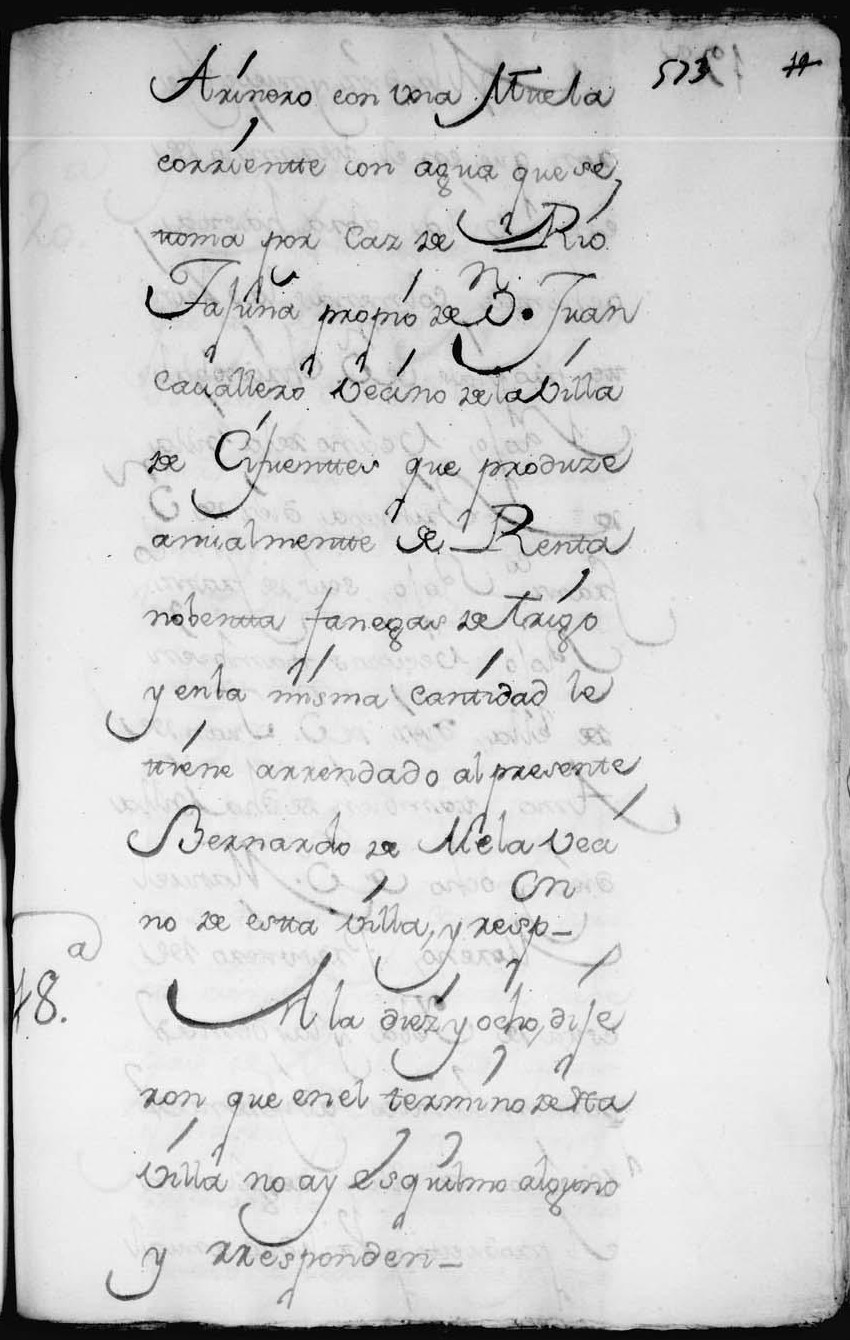 573
Arinero con una Muela
corrientte con agua que se
ttoma por Caz de Rio
Tajuña propio de D.n Juan
Cavallero Vecino de la Villa
de Cifuenttes que produze
anualmentte de Renta
nobentta fanegas de trigo
y en la misma Cantidad le
ttiene arrendado al presente
Bernardo de Mela Veci
no de estta Villa, y resp.on
18.a
A la diez y ocho, dije
ron que en el termino de stta
Villa no ay esquilmo alguno
y rresponden